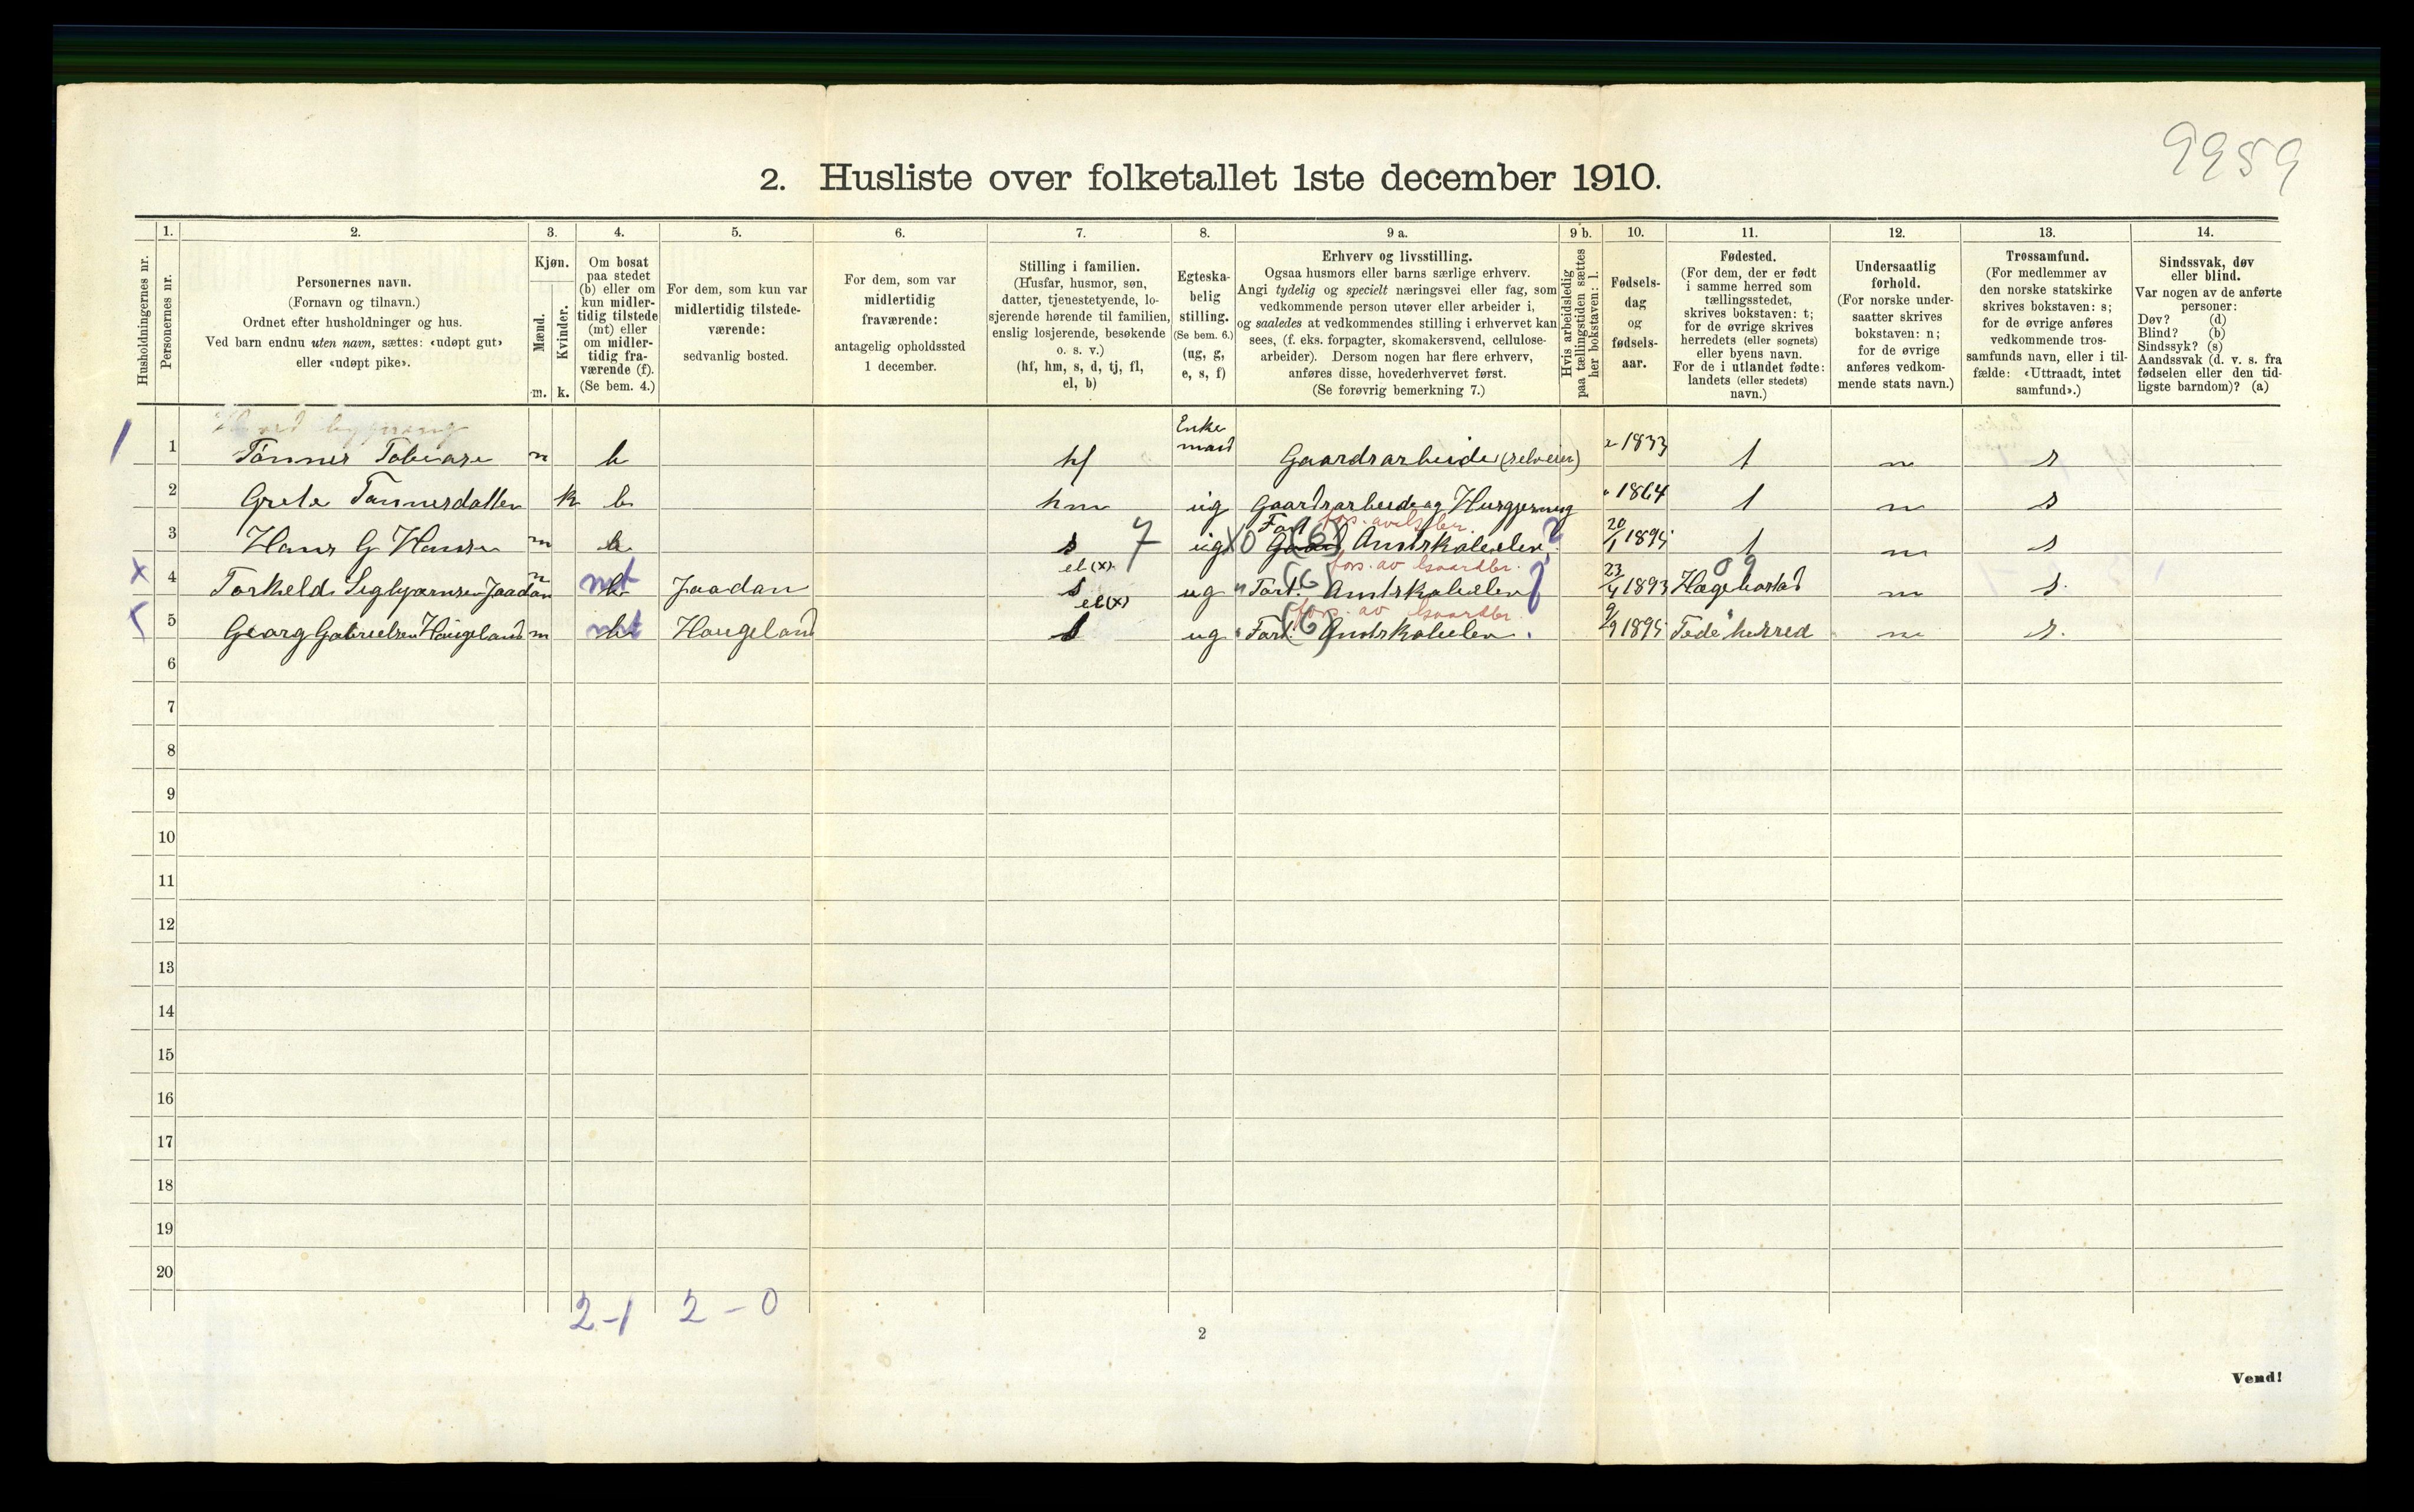 9959
2. Husliste over folketallet 1ste december 1910.
1. 2. 3. 4. 5. 6. 7. 8. 9 a. 9 b. 10. 11. 12. 13. 14.
Husholdningernes nr.
Personernes nr.
Personernes navn.
(Fornavn og tilnavn.)
Ordnet efter husholdninger og hus.
Ved barn endnu uten navn, sættes: «udøpt gut»
eller «udøpt pike».
Kjøn.
Mænd.
Kvinder.
m. k.
Om bosat
paa stedet
(b) eller om
kun midler-
tidig tilstede
(mt) eller
om midler-
tidig fra-
værende (f).
(Se bem. 4.)
For dem, som kun var
midlertidig tilstede-
værende:
sedvanlig bosted.
For dem, som var
midlertidig
fraværende:
antagelig opholdssted
1 december.
Stilling i familien.
(Husfar, husmor, søn,
datter, tjenestetyende, lo-
sjerende hørende til familien,
enslig losjerende, besøkende
o. s. v.)
(hf, hm, s, d, tj, fl,
el, b)
Egteska-
belig
stilling.
(Se bem. 6.)
(ug, g,
e, s, f)
Erhverv og livsstilling.
Ogsaa husmors eller barns særlige erhverv.
Angi tydelig og specielt næringsvei eller fag, som
vedkommende person utøver eller arbeider i,
og saaledes at vedkommendes stilling i erhvervet kan
sees, (f. eks. forpagter, skomakersvend, cellulose-
arbeider). Dersom nogen har flere erhverv,
anføres disse, hovederhvervet først.
(Se forøvrig bemerkning 7.)
Hvis arbeidsledig
paa tællingstiden sættes
her bokstaven: l.
Fødsels-
dag
og
fødsels-
aar.
Fødested.
(For dem, der er født
i samme herred som
tællingsstedet,
skrives bokstaven: t;
for de øvrige skrives
herredets (eller sognets)
eller byens navn.
For de i utlandet fødte:
landets (eller stedets)
navn.)
Undersaatlig
forhold.
(For norske under-
saatter skrives
bokstaven: n;
for de øvrige
anføres vedkom-
mende stats navn.)
Trossamfund.
(For medlemmer av
den norske statskirke
skrives bokstaven: s;
for de øvrige anføres
vedkommende tros-
samfunds navn, eller i til-
fælde: «Uttraadt, intet
samfund».)
Sindssvak, døv
eller blind.
Var nogen av de anførte
personer:
Døv? (d)
Blind? (b)
Sindssyk? (s)
Aandssvak (d. v. s. fra
fødselen eller den tid-
ligste barndom)? (a)
1 1 Tønnes Tobiasen m b hf Enke mand Gaardsarbeide (selveier) 1833 t n s
2 Grete Tønnesdatter k b hm ug Gaardsarbeide og Husgjerning 1864 t n s
3 Hans G Hansen m b s 7 ug X0 (6) Amtskoleelev 20/1 1895 t n s
x 4 Torkeld Sigbjørnsen Jaadan m mt Jaadan s el (x) ug (6) Amtskoleelev fors. av Gaardbr. 23/4 1893 Hægebostad n s.
5 Georg Gabrielsen Haugeland m mt Haugeland s el (x) ug (6) Amtskoleelev. fors. av Gaardbr. 9/9 1895 Fede herred n s.
6
7
8
9
10
11
12
13
14
15
16
17
18
19
20
2-1 2-0
2
Vend!